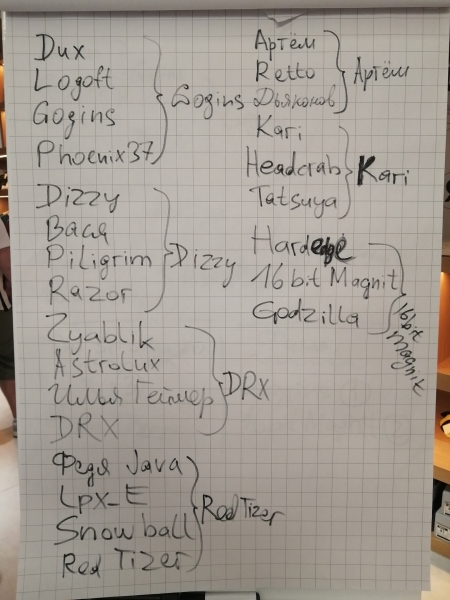 Dux
Logoft
Gogins
Phoenix37
Gogins
Dizzy
Вася
Piligrim
Razor
Dizzy
Zyablik
Astrolux
Илья Геймер
DRX
DRX
Федя Java
Lpx_E
Snowball
Red Tizer
Red Tizer
Артём
Retto
Дьяконов
Артём
Kari
Headcrab
Tatsuya
Kari
Hardedge
16 bit Magnit
Godzilla
16 bit Magnit